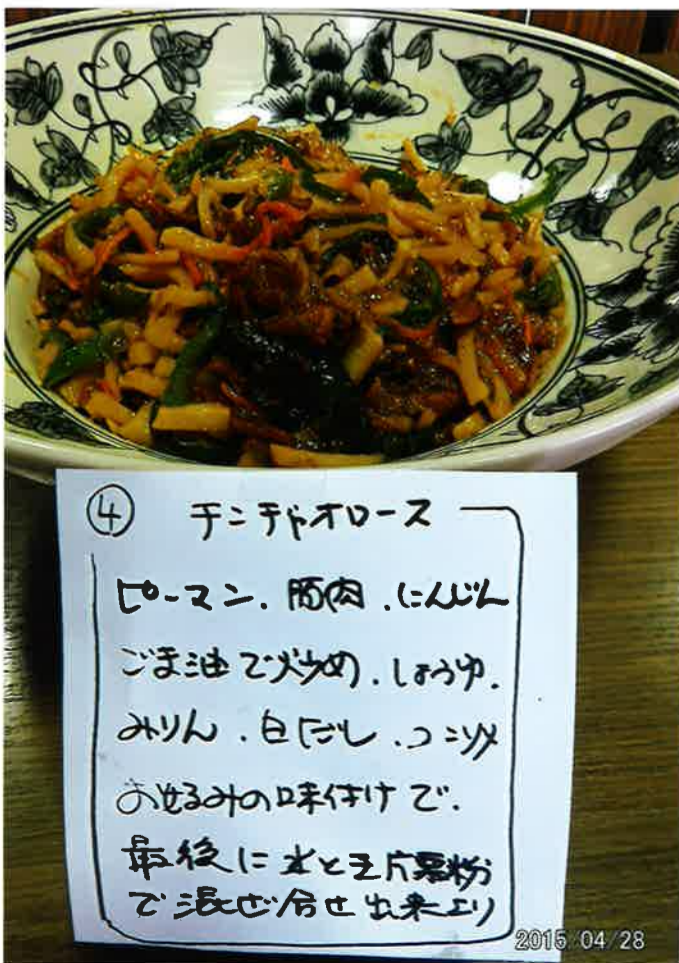 ④ チンチャオロース
ピーマン、豚肉、にんじん
ごま油で炒め、しょうゆ、
みりん、白だし、コンソメ
お好みの味付けで、
最後に水と片栗粉
で混ぜ合せ出来上り
2015/04/28